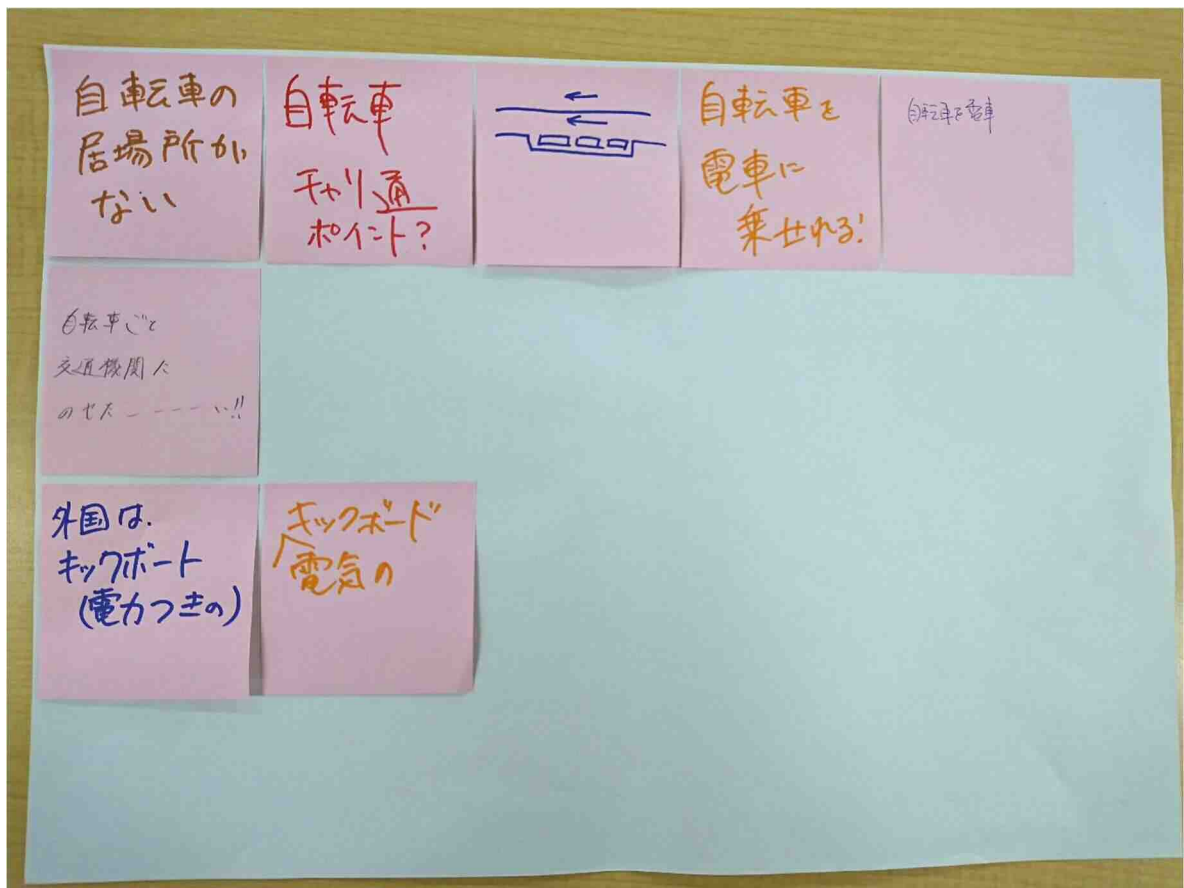 自転車の
居場所が
ない
自転車
チャリ通
ポイント?
自転車を
電車に
乗せれる!
自転車を電車
自転車ごと
交通機関に
のせたーーーーい!!
外国は、
キックボート
(電力つきの)
キックボード
電気の